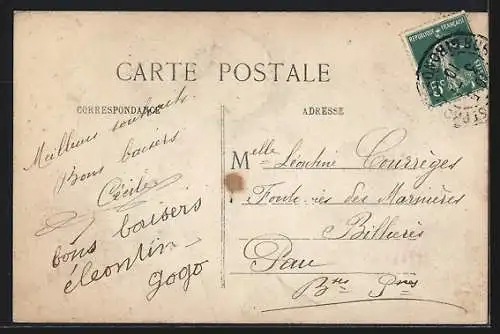 RÉPUBLIQUE FRANÇAISE
CARTE POSTALE
CORRESPONDANCE
ADRESSE
Meilleurs souhaits
Bons baisers
Cécile
bons baisers
éleontin
gogo
Melle Léontine Courrèges
des Marnières
Billères
Pau
Bses Pnées